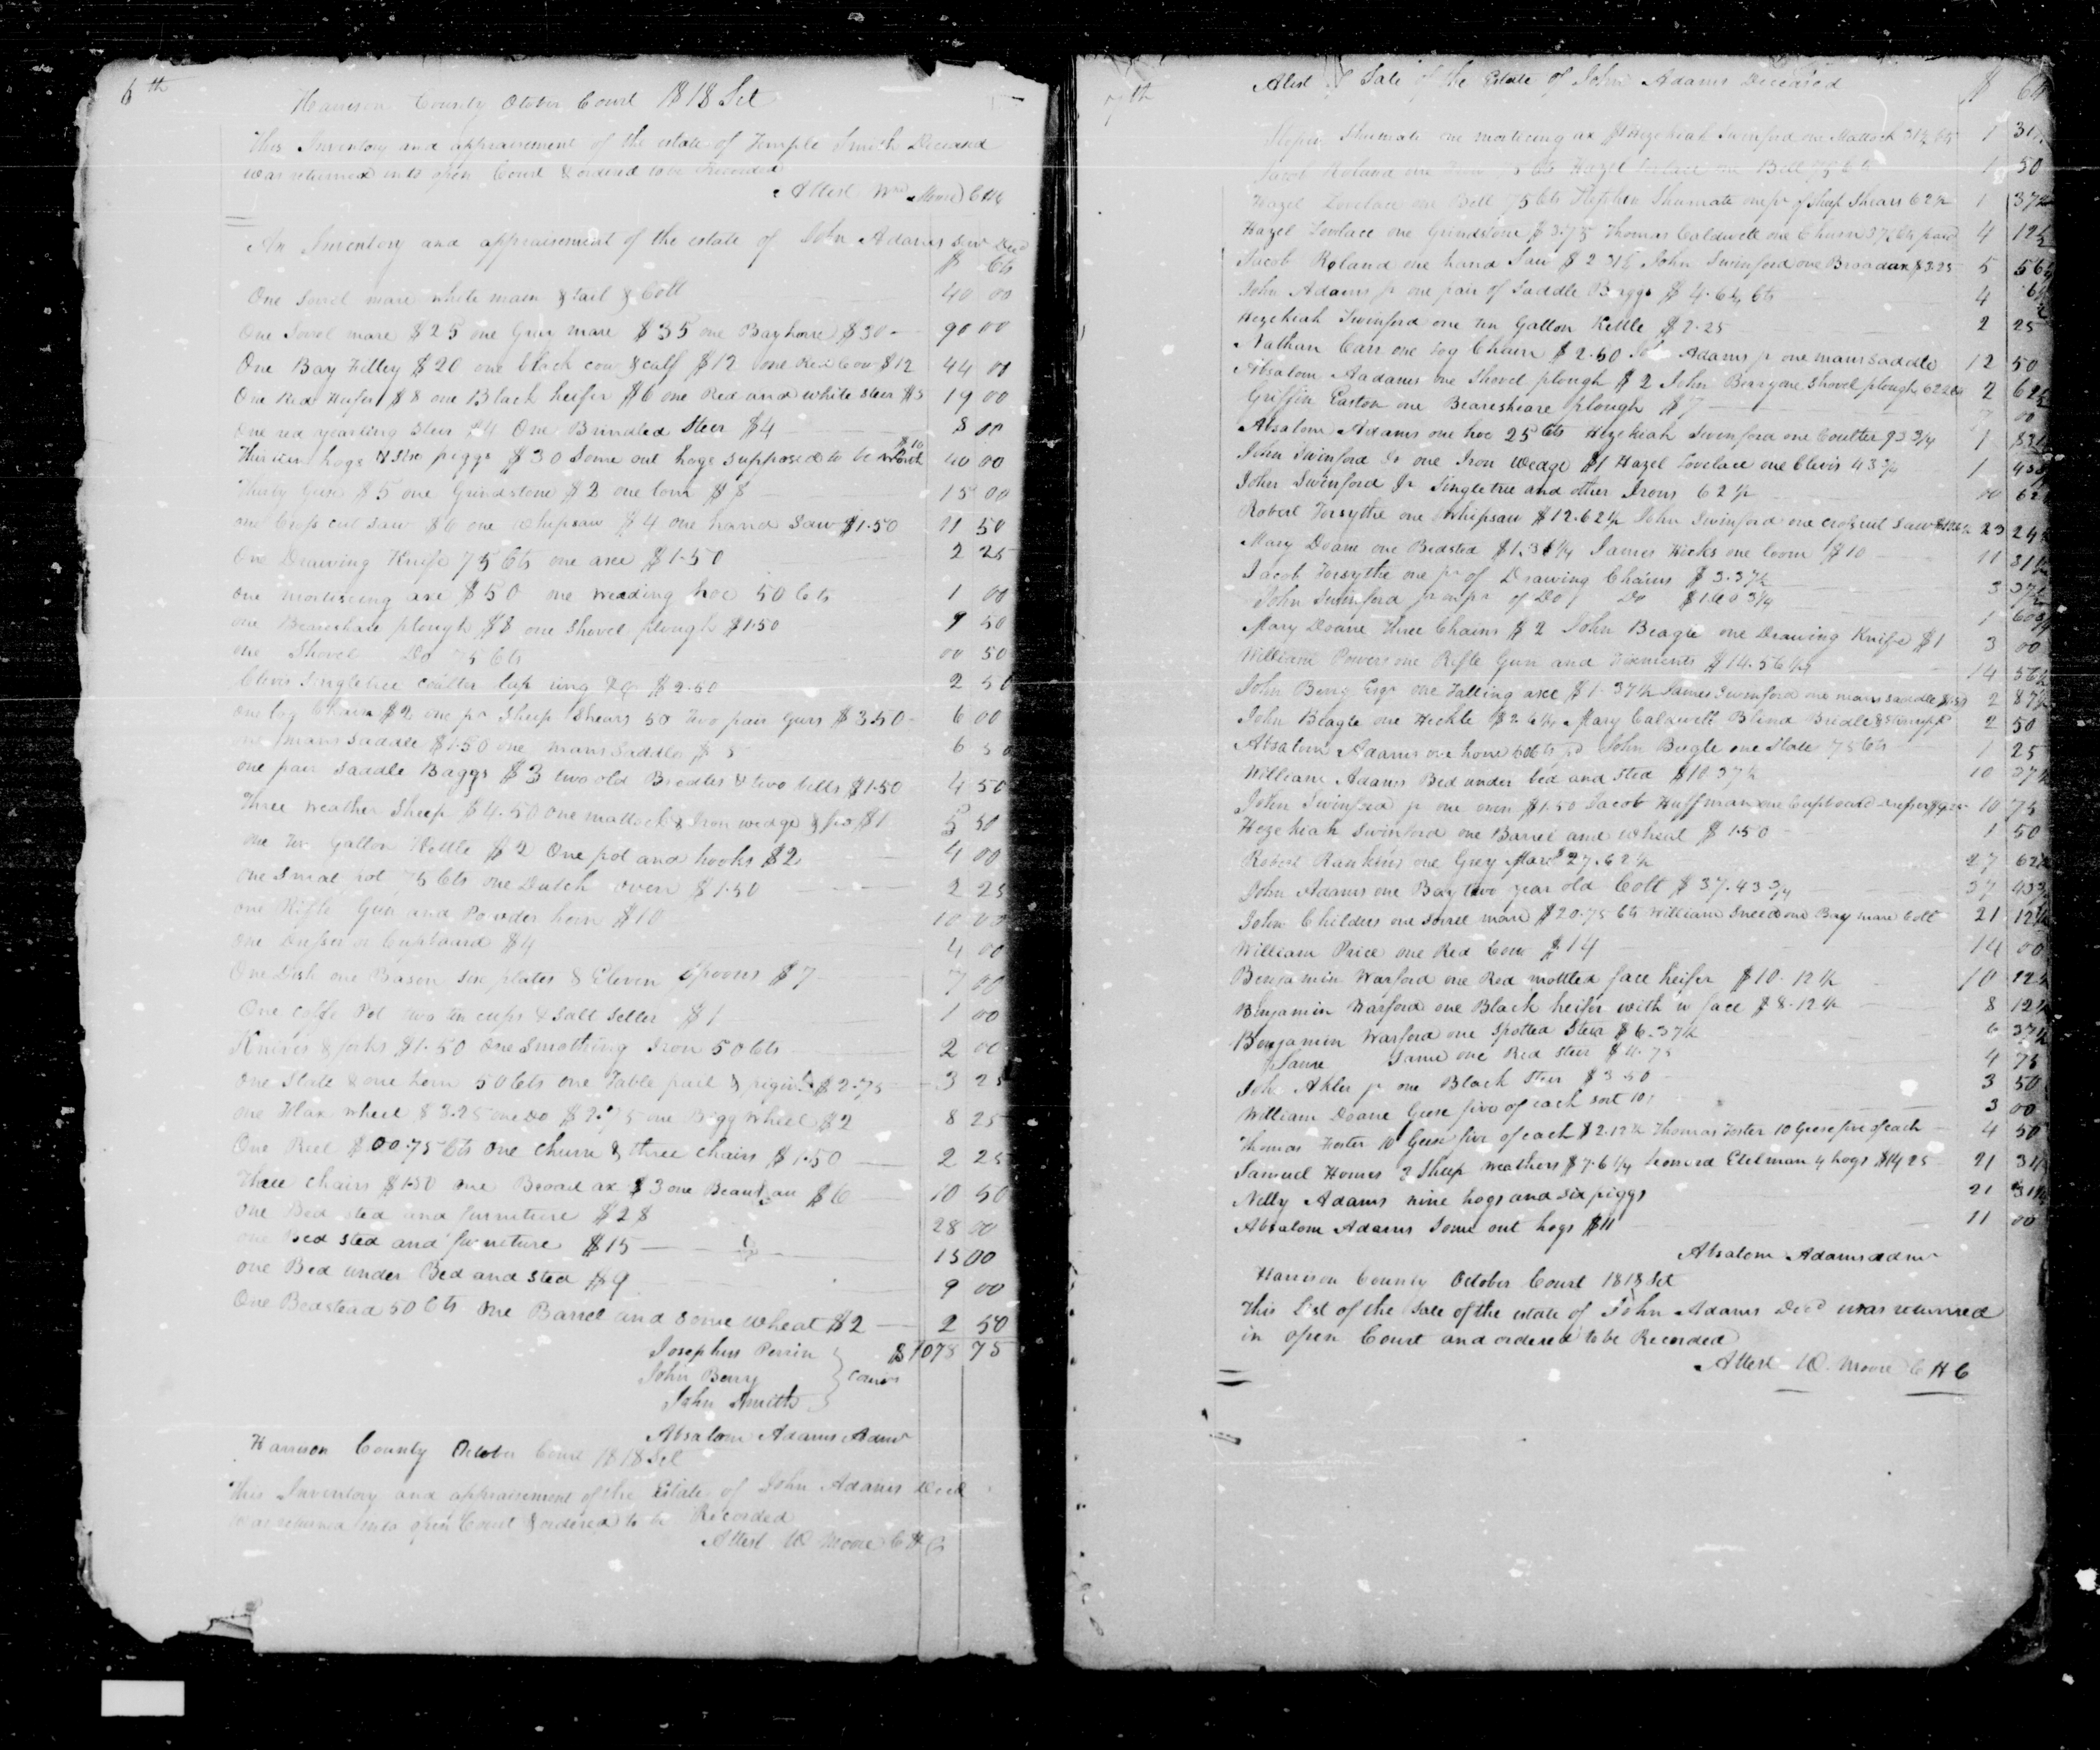 6th
Harrison County October Court 1818 Sct
This Inventory and appraisement of the estate of Temple Smith Deceased
was returned into open Court & ordered to be Recorded
Attest Wm Moore CHC
An Inventory and appraisement of the estate of John Adams Senr Decd
$ Cts
One Sorrel mare white main & tail & Colt 40 00
One Sorel mare $25 one Gray mare $35 one Bay horse $30 90 00
One Bay Filley $20 one black cow & calf $12 one Red Cow $12 44 00
One Red Heifer $8 one Black heifer $6 one Red and white steer $5 19 00
One red yearling Steer $4 One Brindled Steer $4 8 00
Thirteen hogs & Six piggs $30 Some out hogs supposed to be worth $10 40 00
Thirty Geese $5 one Grindstone $2 one loom $8 15 00
one Cross cut saw $6 one whipsaw $4 one hand Saw $1.50 11 50
One Drawing Knife 75 Cts one axe $1.50 2 25
one morticeing axe $50 one weading hoe 50 Cts 1 00
one Bearshare plough $8 one Shovel plough $1.50 9 50
one Shovel Do 75 Cts 00 50
Clevis Singletree coulter lap ring &c $2.50 2 50
one log Chain $2 one pr Sheep Shears 50 Two pair Gears $3.50 6 00
one mans saddle $1.50 one mans Saddle $5 6 50
one pair saddle Baggs $3 two old Bredles & two bells $1.50 4 50
Three weather Sheep $4.50 one mattock & Iron wedge $1 5 50
one ten Gallon Kettle $2 One pot and hooks $2 4 00
one Smal pot 75 Cts one Dutch oven $1.50 2 25
one Rifle Gun and Powder horn $10 10 00
one Dresser or Cupboard $4 4 00
One dish one Bason six plates & Eleven Spoons $7 7 00
One coffe Pot two tin cups & Salt Seller $1 1 00
Knives & forks $1.50 One Smothing Iron 50 Cts 2 00
one Slate & one horn 50 Cts one Table pail & pigins $2.75 3 25
one Flax wheel $3.25 one Do $2.75 one Bigg Wheel $2 8 25
One Reel $00.75 Cts One Churn & three chairs $1.50 2 25
Three Chairs $1.50 one Broad ax $3 one Beaureau $6 10 50
one Bed sted and furniture $28 28 00
one Bed sted and furniture $15 15 00
one Bed under Bed and sted $9 9 00
One Bedstead 50 Cts One Barrel and some wheat $2 2 50
Josephus Perrin $1078 75
John Berry } Comrs
John Smith
Absalom Adams Admr
Harrison County October Court 1818 Sct
This Inventory and appraisement of the Estate of John Adams Decd
was returned into open Court & ordered to be Recorded
Attest W Moore CHC
7th
A list of Sale of the Estate of John Adams Deceased $ Cts
Stephen Shumate one morticeing ax $1 Hezekiah Swinford one Mattock 31½ Cts 1 31
Jacob Roland one Hazel Lovelace one Bell 75 Cts 1 50
Hazel Lovelace one Bell 75 Cts Stephen Shumate one pr of Sheep Shears 62½ 1 37½
Hazel Lovelace one Grindstone $3.75 Thomas Caldwell one Churn 37½ Cts paid 4 12½
Jacob Roland one hand Saw $2 31¼ John Swinford one Broadax $3.25 5 56¼
John Adams jr one pair of Saddle Baggs $4.6¼ Cts 4 6¼
Hezekiah Swinford one ten Gallon Kettle $2.25 2 25
Nathan Carr one log Chain $2.50 John Adams jr one mans Saddle 12 50
Absalom Aadams one Shovel plough $2 John Berry one Shovel plough 62½ Cts 2 62½
Griffin Easton one Beareshare plough $7 7 00
Absalom Adams one hoe 25 Cts Hezekiah Swinford one Coulter 93¾ 1
John Swinford Sr one Iron Wedge $1 Hazel Lovelace one Clevis 43¾ 1 43¾
John Swinford Jr Singletree and other Irons 62½ 00 62½
Robert Forsythe one Whipsaw $12.62½ John Swinford one croscut Saw 23 24
Mary Doane one Bedsted $1.31¼ James Hicks one loom $10 11 31¼
Jacob Forsythe one pr of Drawing Chains $3.37½ 3 37½
John Swinford jr one pr of Do Do $1.60¾ 1 60¾
Mary Doane Three Chains $2 John Beagle one Drawing Knife $1 3 00
William Powers one Rifle Gun and $14.56¼ 14 56¼
John Berry Esqr one Falling axe $1.37½ James Swinford one mans saddle $1.50 2 87½
John Beagle one Heckle $2.6¼ Mary Caldwell Blind Bridle & 2 50
Absalom Adams one horn 50 Cts John Beagle one Slate 75 Cts 1 25
William Adams Bed under bed and sted $10 37½ 10 37½
John Swinford jr one oven $1.50 Jacob Huffman one Cupboard dresser $9.25 10 75
Hezekiah Swinford one Barrel and wheat $1.50 1 50
Robert Rankins one Grey Mare $27.62½ 27 62½
John Adams one Bay two year old Colt $37.43¾ 37 43¾
John Childers one Sorrel mare $20.75 Cts William Sneed one Bay mare Colt 21 12½
William Price one Red Cow $14 14 00
Benjamin Warford one Red mottled face heifer $10.12½ 10 12½
Benjamin Warford one Black heifer with w face $8.12½ 8 12½
Benjamin Warford one Spotted Steer $6.37½ 6 37½
Same Same one Red Steer $4.75 4 75
John Akler jr one Black Steer $3.50 3 50
William Doane Geese five of each sort 10 3 00
Thomas Foster 10 Geese five of each $2.12½ Thomas Foster 10 Geese five of each 4 50
Samuel Homes 3 Sheep weathers $7.6¼ Leonard Etelman 4 hogs $14 25 21 31¼
Nelly Adams nine hogs and six piggs 21 31¼
Absalom Adams Some out hogs $11 11 00
Absalom Adams admr
Harrison County October Court 1818 Sct
This List of the Sale of the estate of John Adams Decd was returned
in open Court and ordered to be Recorded
Attest W. Moore CHC